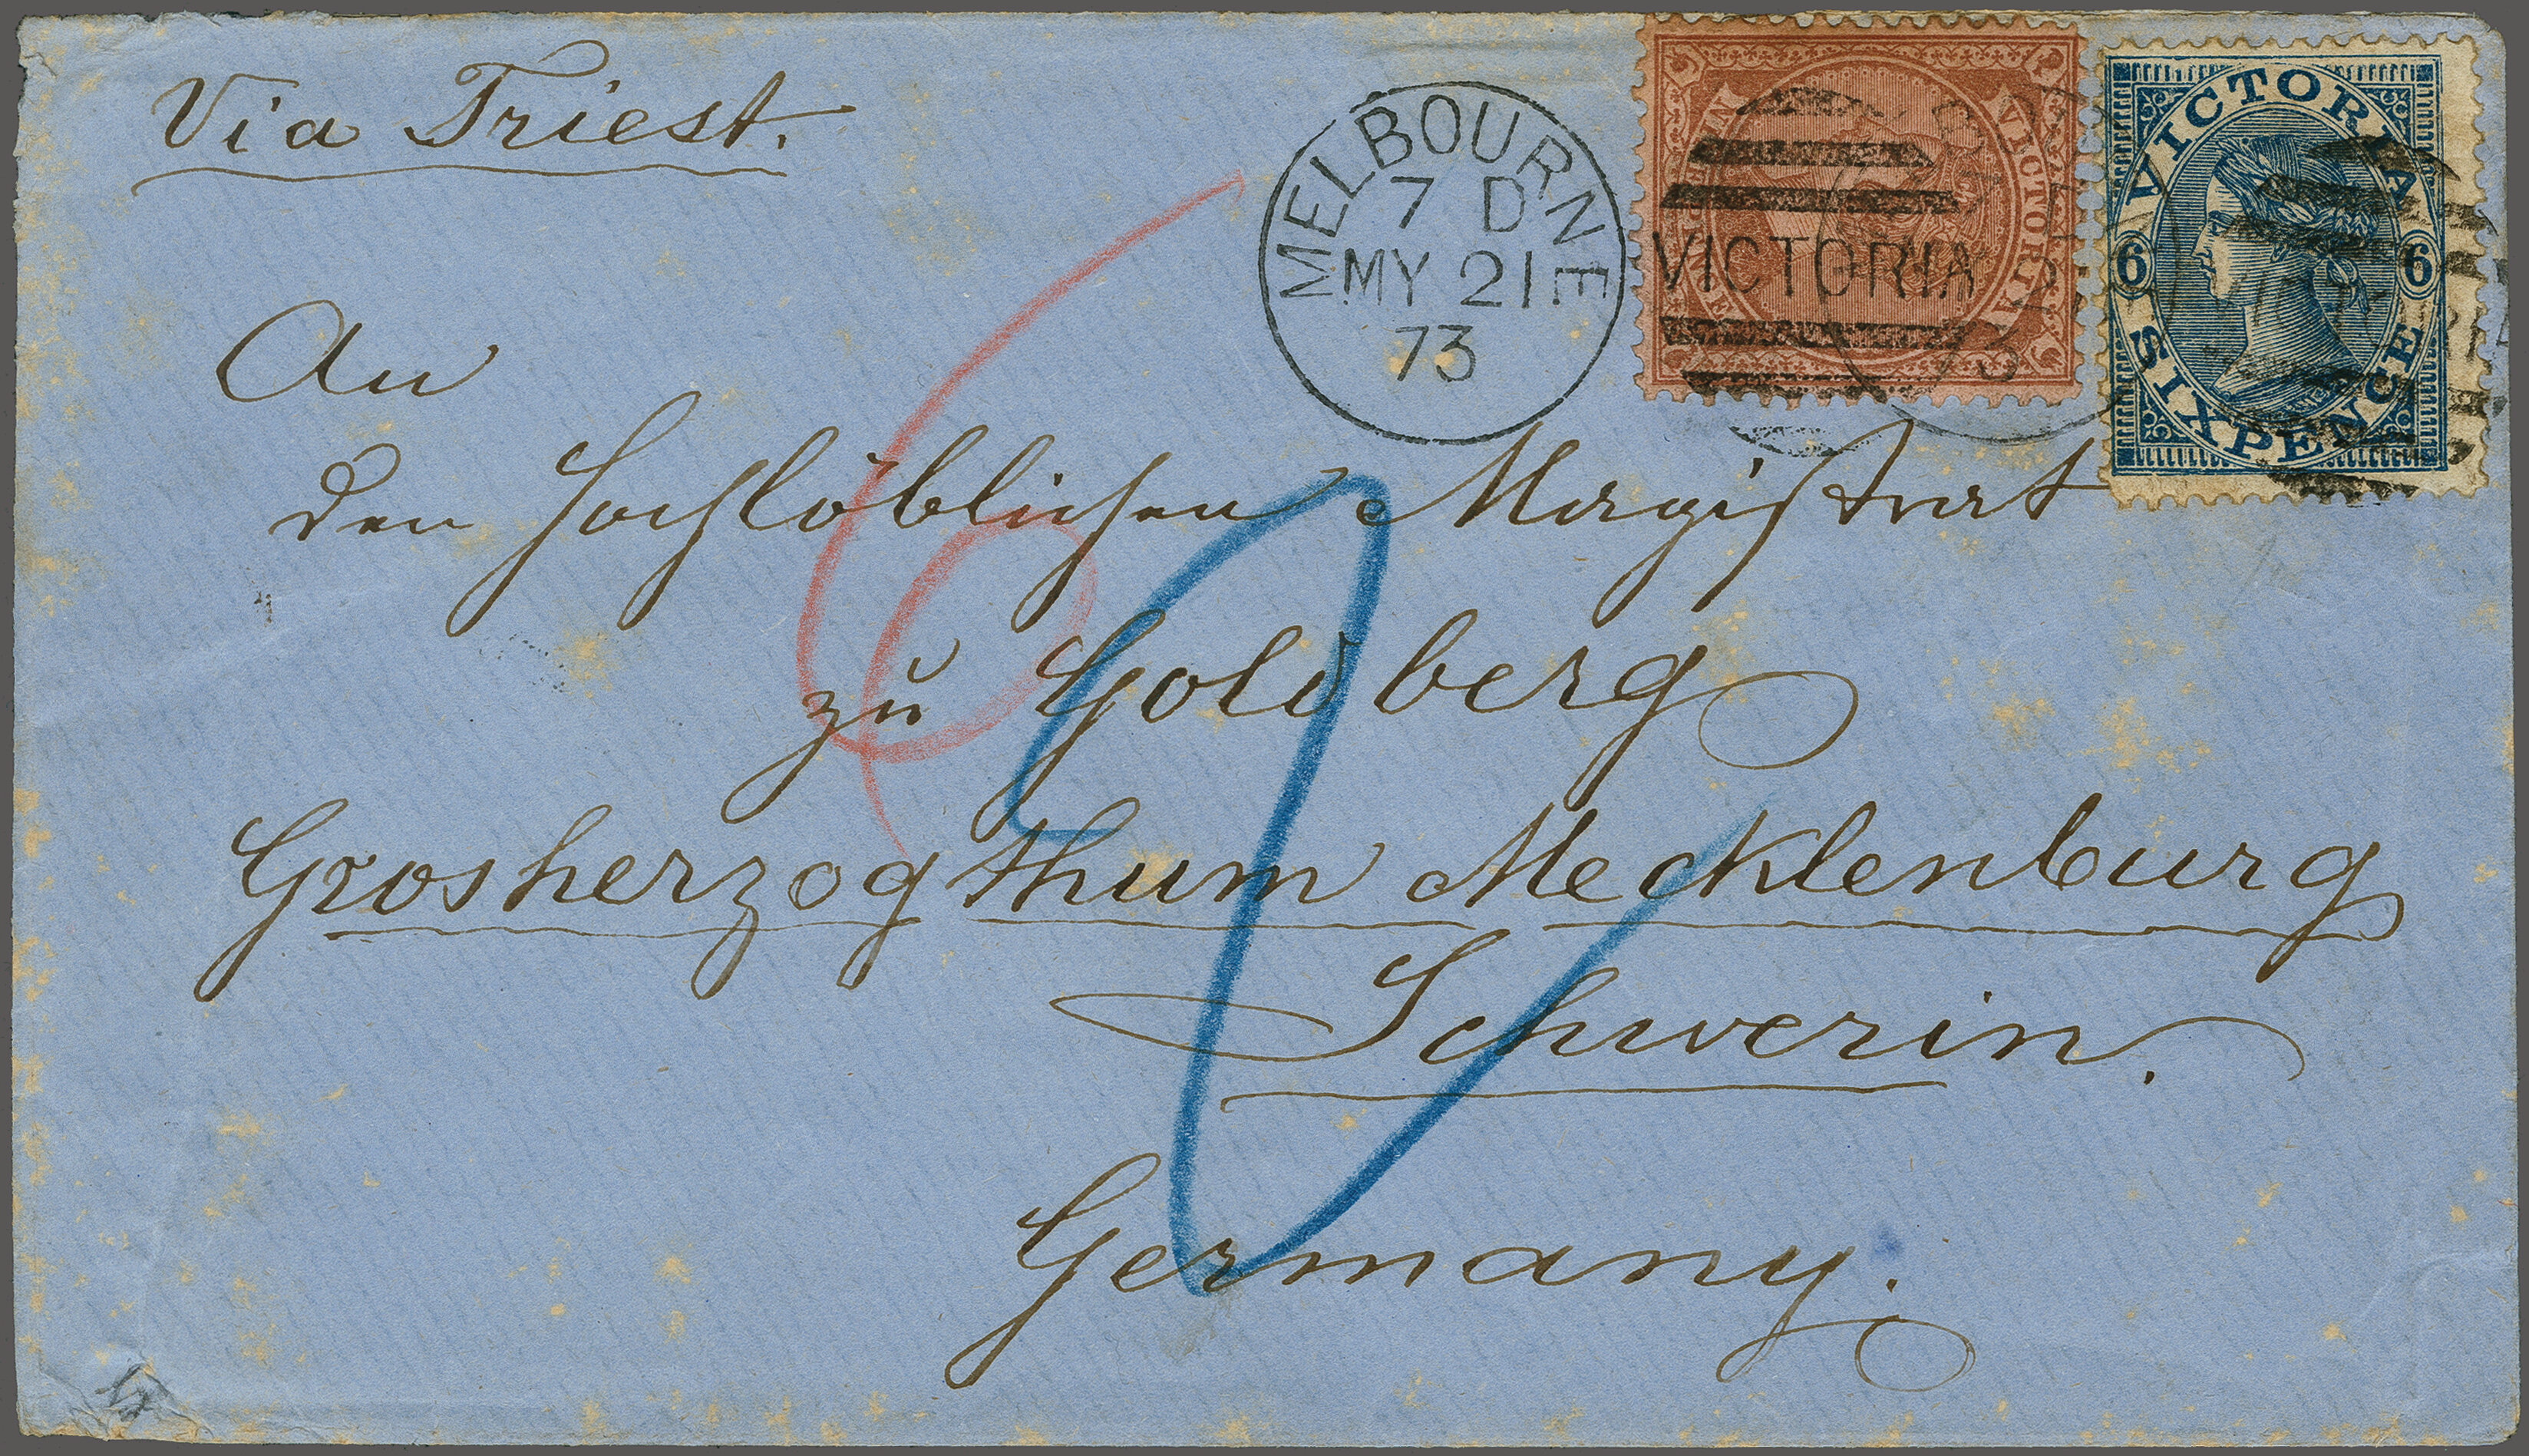 Via Triest.
MELBOURNE
7 D
MY 21
73
VICTORIA
VICTORIA
VICTORIA
6 6
SIXPENCE
An
den Hochlöblichen Magistrat
zu Goldberg
Grosherzogthum Mecklenburg
Schwerin.
Germany.
6